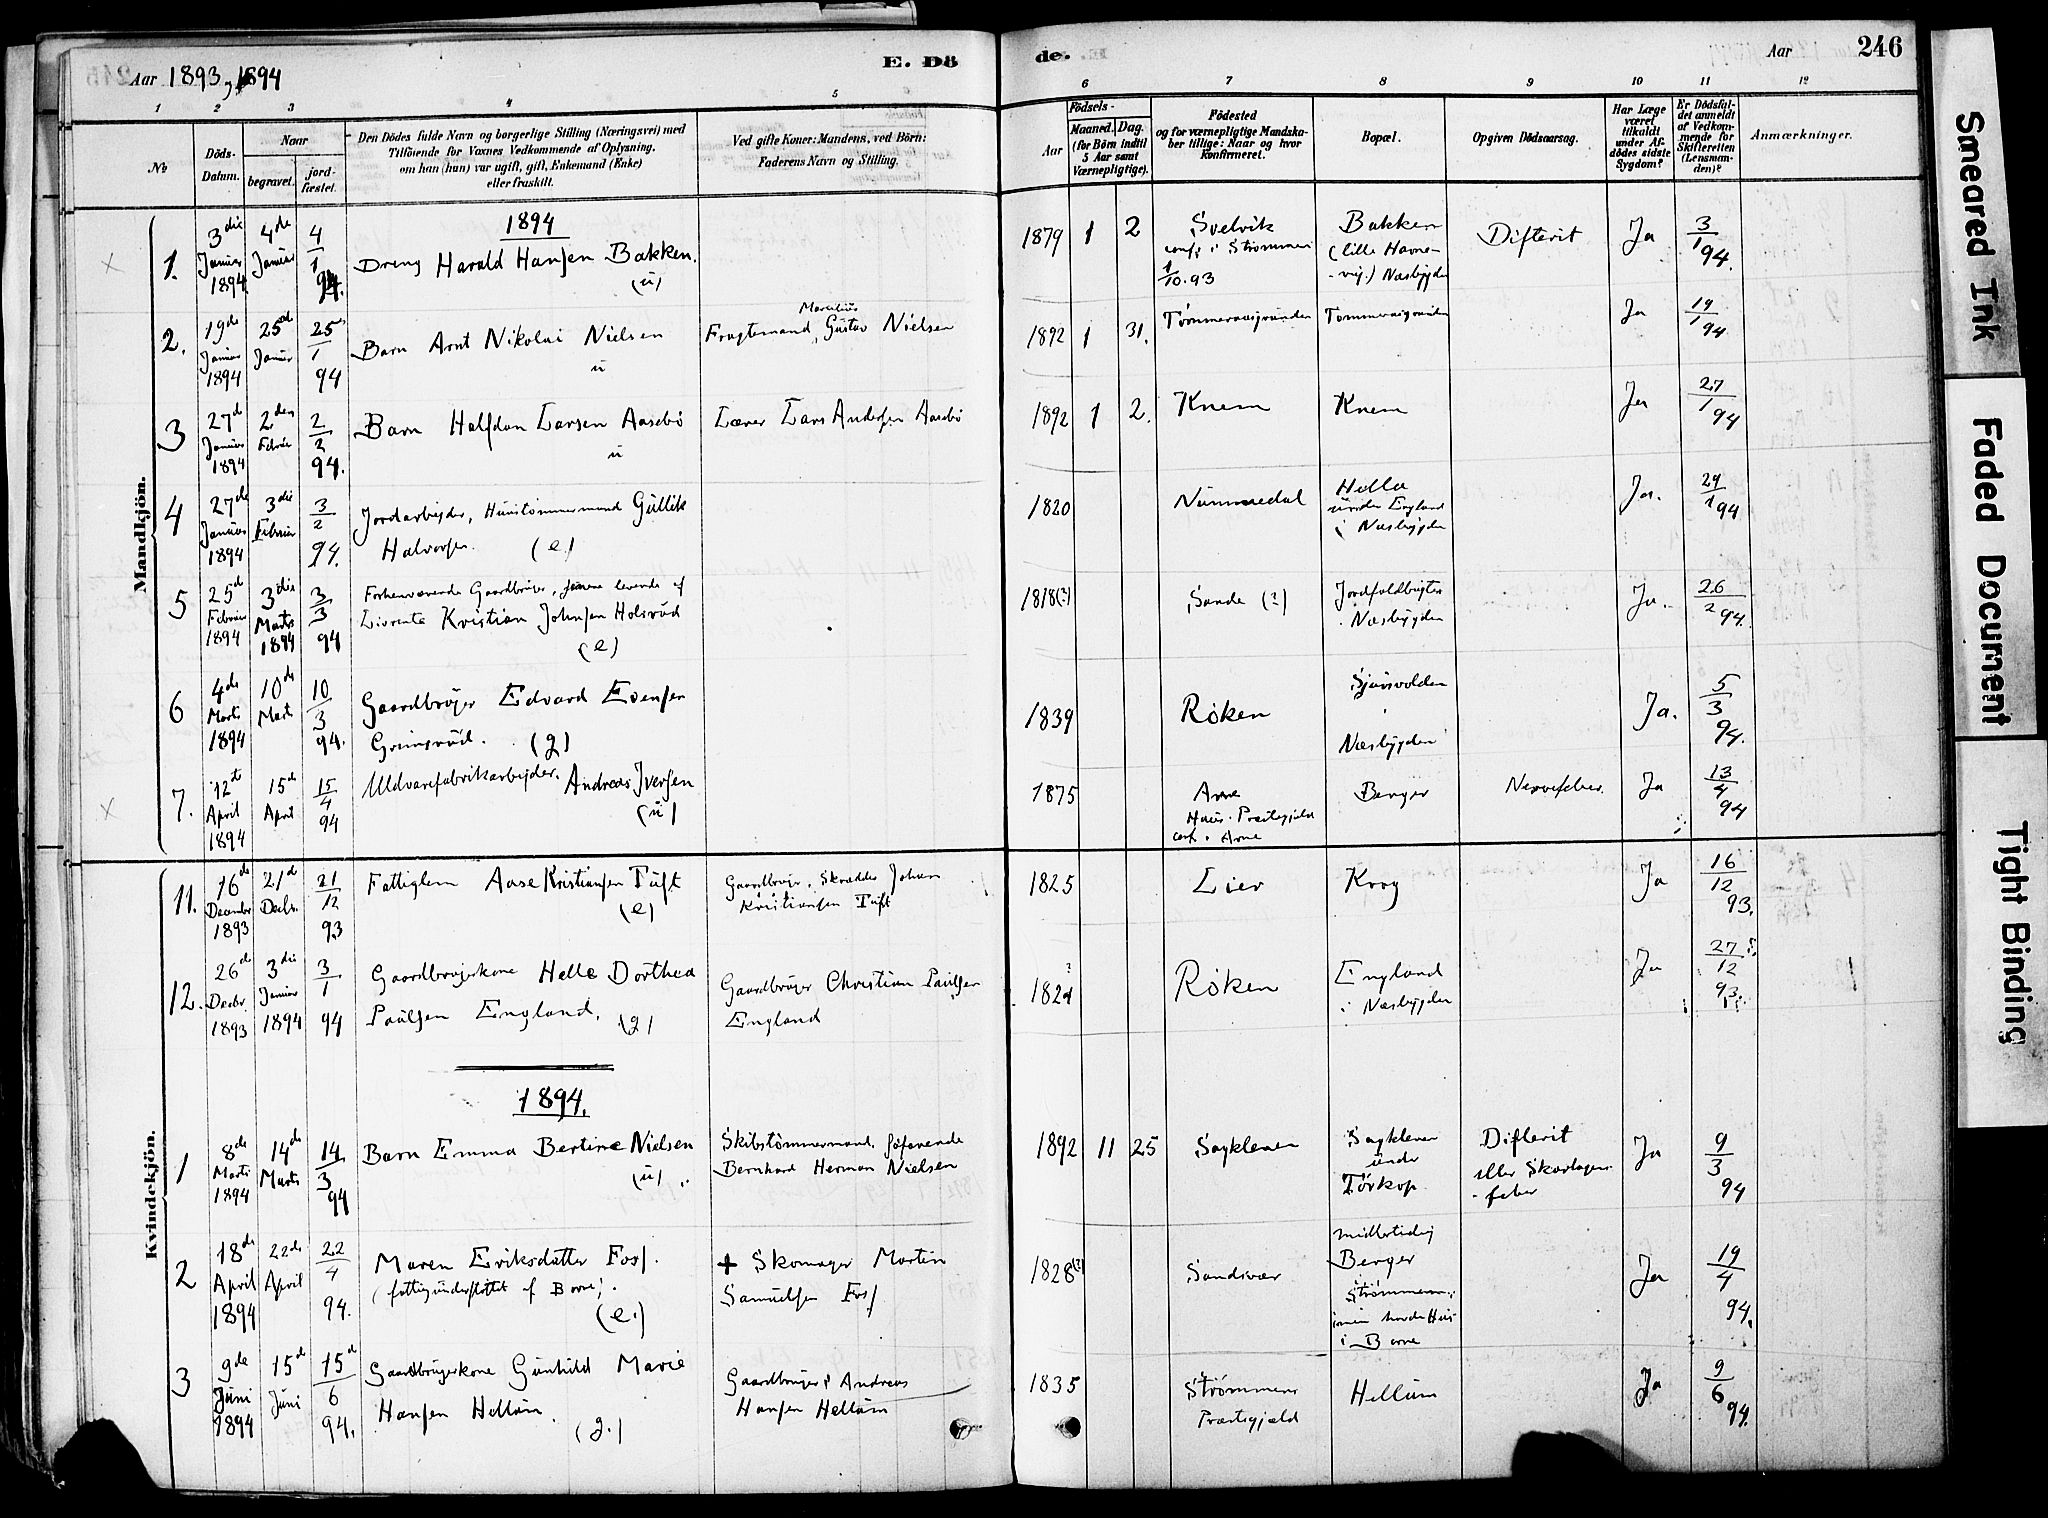 Aar 1893, 1894
E. Dö
de.
Aar
246
1
2
3
4
5
6
7
8
9
10
11
12
No
Döds-
Datum.
Naar
begravet.
jord-
fæstet.
Den Dödes fulde Navn og borgerlige Stilling (Næringsvei) med
Tilföiende for Voxnes Vedkommende af Oplysning,
om han (hun) var ugift, gift, Enkemand (Enke)
eller fraskilt.
Ved gifte Koner: Mandens, ved Börn:
Faderens Navn og Stilling.
Födsels-
Aar
Maaned. Dag.
(for Börn indtil
5 Aar samt
Værnepligtige).
Födested
og for værnepligtige Mandska-
ber tillige: Naar og hvor
Konfirmeret.
Bopæl.
Opgiven Dödsaarsag.
Har Læge
været
tilkaldt
under Af-
dödes sidste
Sygdom?
Er Dödsfal-
det anmeldt
af Vedkom-
mende for
Skifteretten
(Lensman-
den)?
Anmærkninger.
Mandkjön.
1894
1. 3die Januar 1894 4de Januar 4/1 94. Dreng Harald Hansen Bakken. (u) 1879 1 2 Svelvik conf. i Strømmen 1/10.93 Bakken (lille Havne- vig.) Næsbygden Difterit Ja 3/1 94.
2. 19de Januar 1894 25de Januar 25/1 94 Barn Arnt Nikolai Nielsen u Fragtemand, Marselius Gustav Nielsen 1892 1 31. Ja 19/1 94
3 27d Januar 1894 2den Februar 2/2 94. Barn Halfdan Larsen Aasebö u Lærer Lars Andersen Aasebö 1892 1 2. Knem Knem Ja 27/1 94
4 27de Januar 1894 3die Februar 3/2 94. Jordarbejder, Huustømmermand Gullik Halvorsen. (e.) 1820 Nummedal Hella under England i Næsbygden Ja. 29/1 94
5 25d Februar 1894 3die Marts 1894 3/3 94 Forhenværende Gaardbruger, levende af Livrente Kristian Johnsen Holsrud (e) 1818(?) Sande (?) Næsbygden Ja. 26/2 94.
6 4de Marts 1894 10de Marts 10/3 94. Gaardbruger Edvard Evensen Grimsrud. (g) 1839 Röken Næsbygden Ja. 5/3 94.
7. 12te April 1894 15d April 15/4 94 Uldvarefabrikarbejder. Andreas Iversen (u) 1875 Arne Haus Præstegjeld conf. i Arne Berger Nervefeber. Ja 13/4 94
Kvindekjön.
11. 16de December 1893 21d Decbr. 21/12 93 Fattiglem Aase Kristiansen Tuft (e) Gaardbruger, Skrædder Johan Kristiansen Tuft 1825 Lier Krog Ja 16/12 93.
12. 26d Decbr 1893 3die Januar 1894 3/1 94 Gaardbrugerkone Helle Dorthea Paulsen England. (g) Gaardbruger Christian Paulsen England Röken England i Næsbygden Ja 27/12 93
1894.
1 8de Marts 1894 14de Marts 14/3 94 Barn Emma Bertine Nielsen (u) Skibstömmermand, søfarende Bernhard Herman Nielsen 1892 11 25 Sagkleven Sagkleven under Törkop Difterit eller Skarlagens- feber Ja 9/3 94
2 18de April 1894 22de April 22/4 94. Maren Eriksdatter Foss. (fattigunderstöttet af Borre). (e.) + Skomager Martin Samuelsen Foss 1828(?) Sandsvær midlertidig Berger Strömmen, men havde Hus i Borre Ja 19/4 94.
3 9de Juni 1894 15d Juni 15/6 94. Gaardbrugerkone Gunhild Marie Hansen Hellum. (g.) Gaardbruger Andreas Hansen Hellum 1835 Strömmens Præstegjeld Hellum Ja 9/6 94.
Smeared Ink
Faded Document
Tight Binding